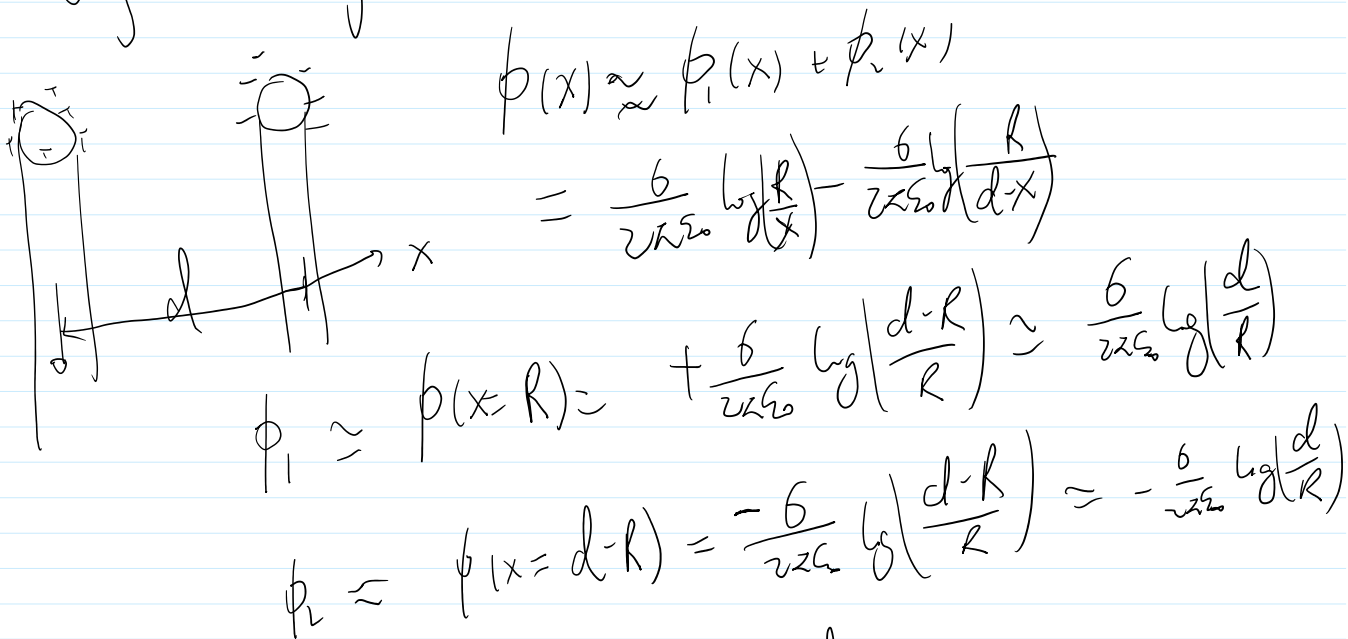 ϕ(x) ≈ ϕ₁(x) + ϕ₂(x)
= σ/(2πε₀) log(R/x) − σ/(2πε₀) log(R/(d-x))
d x
ϕ₁ ≃ ϕ(x=R) = + σ/(2πε₀) log((d-R)/R) ≃ σ/(2πε₀) log(d/R)
ϕ₂ ≃ ϕ(x=d-R) = -σ/(2πε₀) log((d-R)/R) ≃ - σ/(2πε₀) log(d/R)